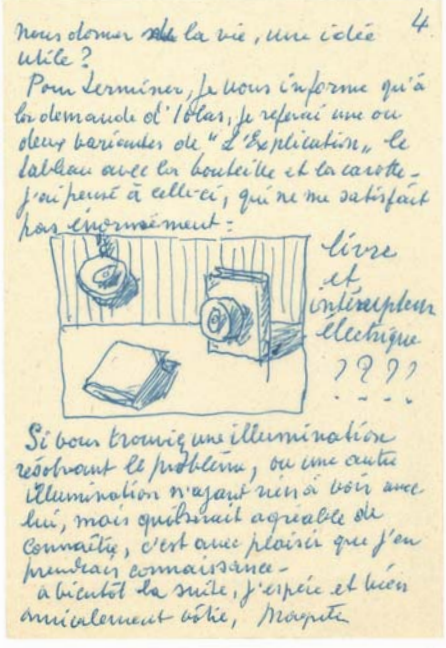 4.
nous donner de la vie, une idée
utile ?
Pour terminer, je vous informe qu'à
la demande d'Iolas, je referai une ou
deux variantes de "L'Explication" le
tableau avec la bouteille et la carotte -
j'ai pensé à celle-ci, qui ne me satisfait
pas énormément :
livre
et
interrupteur
électrique
? ? ? ?
Si vous trouviez une illumination
résolvant le problème, ou une autre
illumination n'ayant rien à voir avec
lui, mais qu'il serait agréable de
connaître, c'est avec plaisir que j'en
prendrais connaissance -
à bientôt la suite, j'espère et bien
amicalement vôtre, Magritte